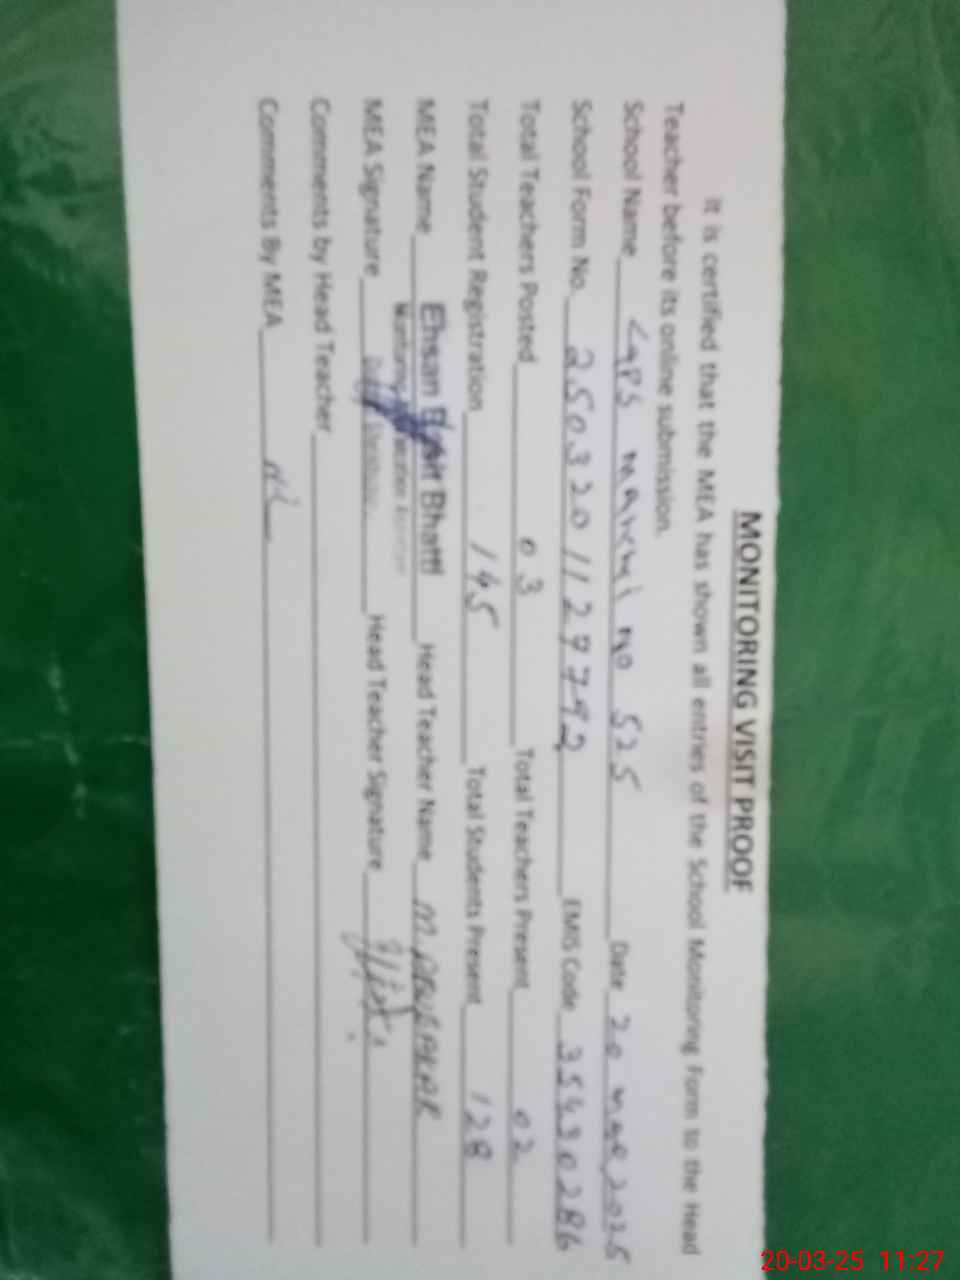 MONITORING VISIT PROOF
It is certified that the MEA has shown all entries of the School Monitoring Form to the Head
Teacher before its online submission.
School Name 525 Date 20 2025
School Form No. 250320112779 2 EMIS Code 35430286
Total Teachers Posted 03 Total Teachers Present 02
Total Student Registration 145 Total Students Present 128
MEA Name Ehsan Bhatti Head Teacher Name M. ABUBAKAR
MEA Signature Head Teacher Signature
Comments by Head Teacher
Comments By MEA
20-03-25 11:27